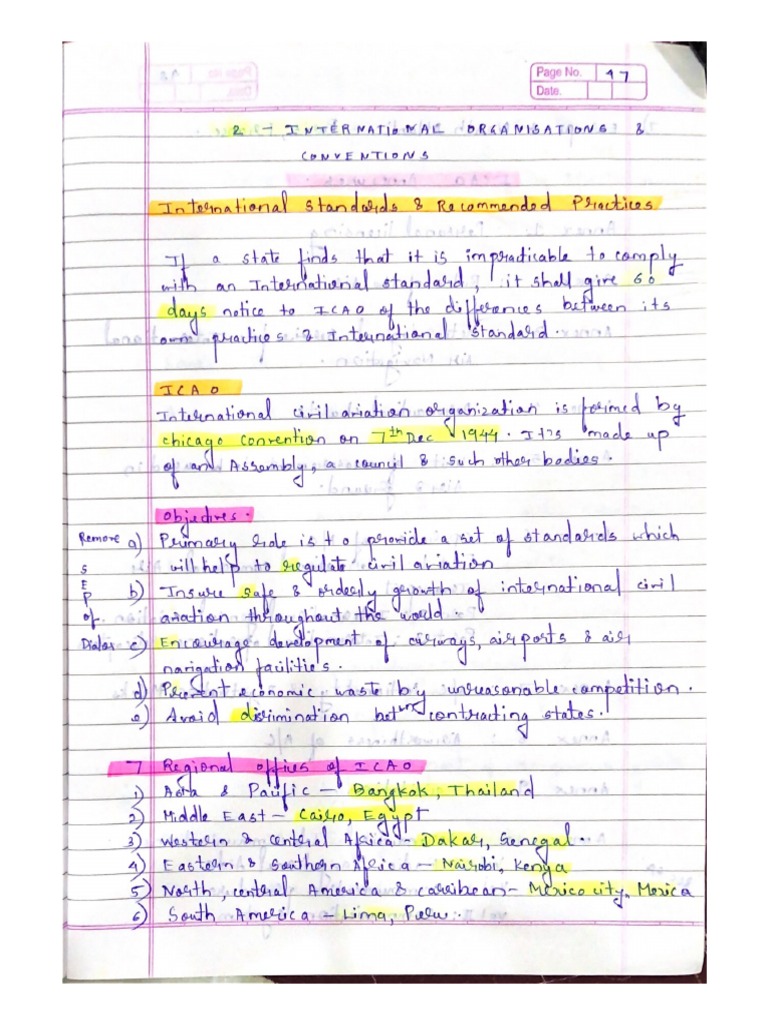 Page No. 97
Date.
2 - INTERNATIONAL ORGANISATIONS &
CONVENTIONS
International Standards & Recommended Practices
If a state finds that it is impracticable to comply
with an International standard, it shall give 60
days notice to ICAO of the differences between its
own practices & International Standard.
ICAO
International civil aviation organization is formed by
chicago convention on 7th Dec 1944. It's made up
of an Assembly, a council & such other bodies.
Objectives.
Remove a) Primary role is to provide a set of standards which
S will help to regulate civil aviation
E
P b) Insure safe & orderly growth of international civil
of aviation throughout the world.
Dialas c) Encourage development of airways, airports & air
navigation facilities.
d) Prevent economic waste by unreasonable competition.
e) Avoid disrimination betwn contracting states.
7 Regional offices of ICAO
1) Asia & Pacific - Bangkok, Thailand
2) Middle East - Cairo, Egypt
3) Western & central Africa - Dakar, Senegal.
4) Eastern & Southern Africa - Nairobi, Kenya
5) North, central America & caribean - Mexico city, Mexica
6) South America - Lima, Peru.